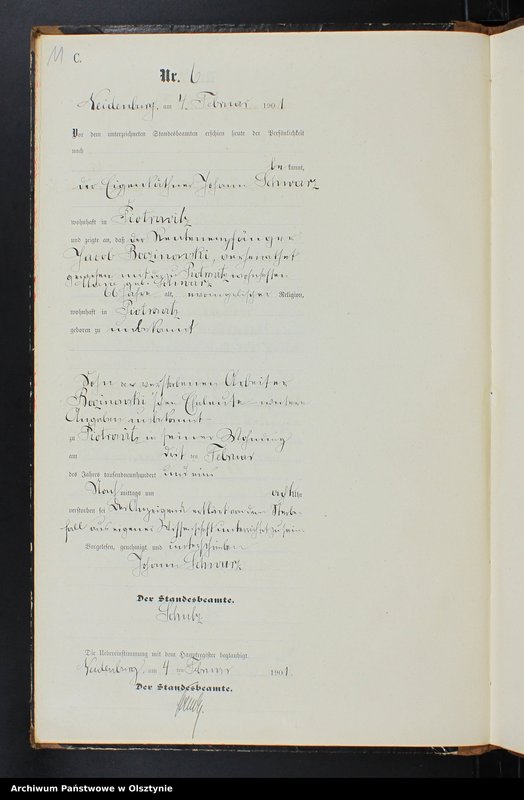 11 C.
Nr. 6
Neidenburg, am 4. Februar 1901
Vor dem unterzeichneten Standesbeamten erschien heute der Persönlichkeit
nach
bekannt,
der Eigenkäthner Johann Schwarz
wohnhaft in Piotrowitz
und zeigte an, daß der Rentenempfänger
Jacob Bozinowski, verheirathet
gewesen mit der zu Piotrowitz wohnhaften
geb. Schwarz
66 Jahre alt, evangelischer Religion,
wohnhaft in Piotrowitz
geboren zu unbekannt
Sohn der verstorbenen Arbeiter
Bozinowski'schen Eheleute weitere
Angaben unbekannt
zu Piotrowitz in seiner Wohnung
am des Februar
des Jahres tausendneunhundert und eins
Nachmittags um acht Uhr
verstorben sei. Der Anzeigende erklärt von dem Sterbe-
fall aus eigener Wissenschaft unterrichtet zu sein.
Vorgelesen, genehmigt und unterschrieben
Johann Schwarz
Der Standesbeamte.
Schulz
Die Uebereinstimmung mit dem Hauptregister beglaubigt.
Neidenburg, am 4 ten Februar 1901.
Der Standesbeamte.
Schulz.
Archiwum Państwowe w Olsztynie